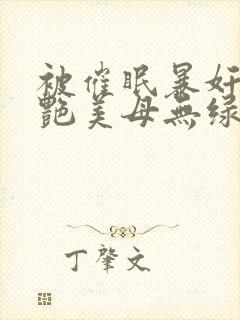 被催眠暴奸
艷美母無绿
丁肇文